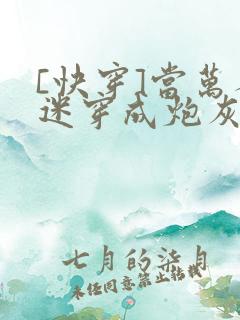 [快穿]當萬
迷穿成炮灰
七月的柒月
未经同意禁止转载